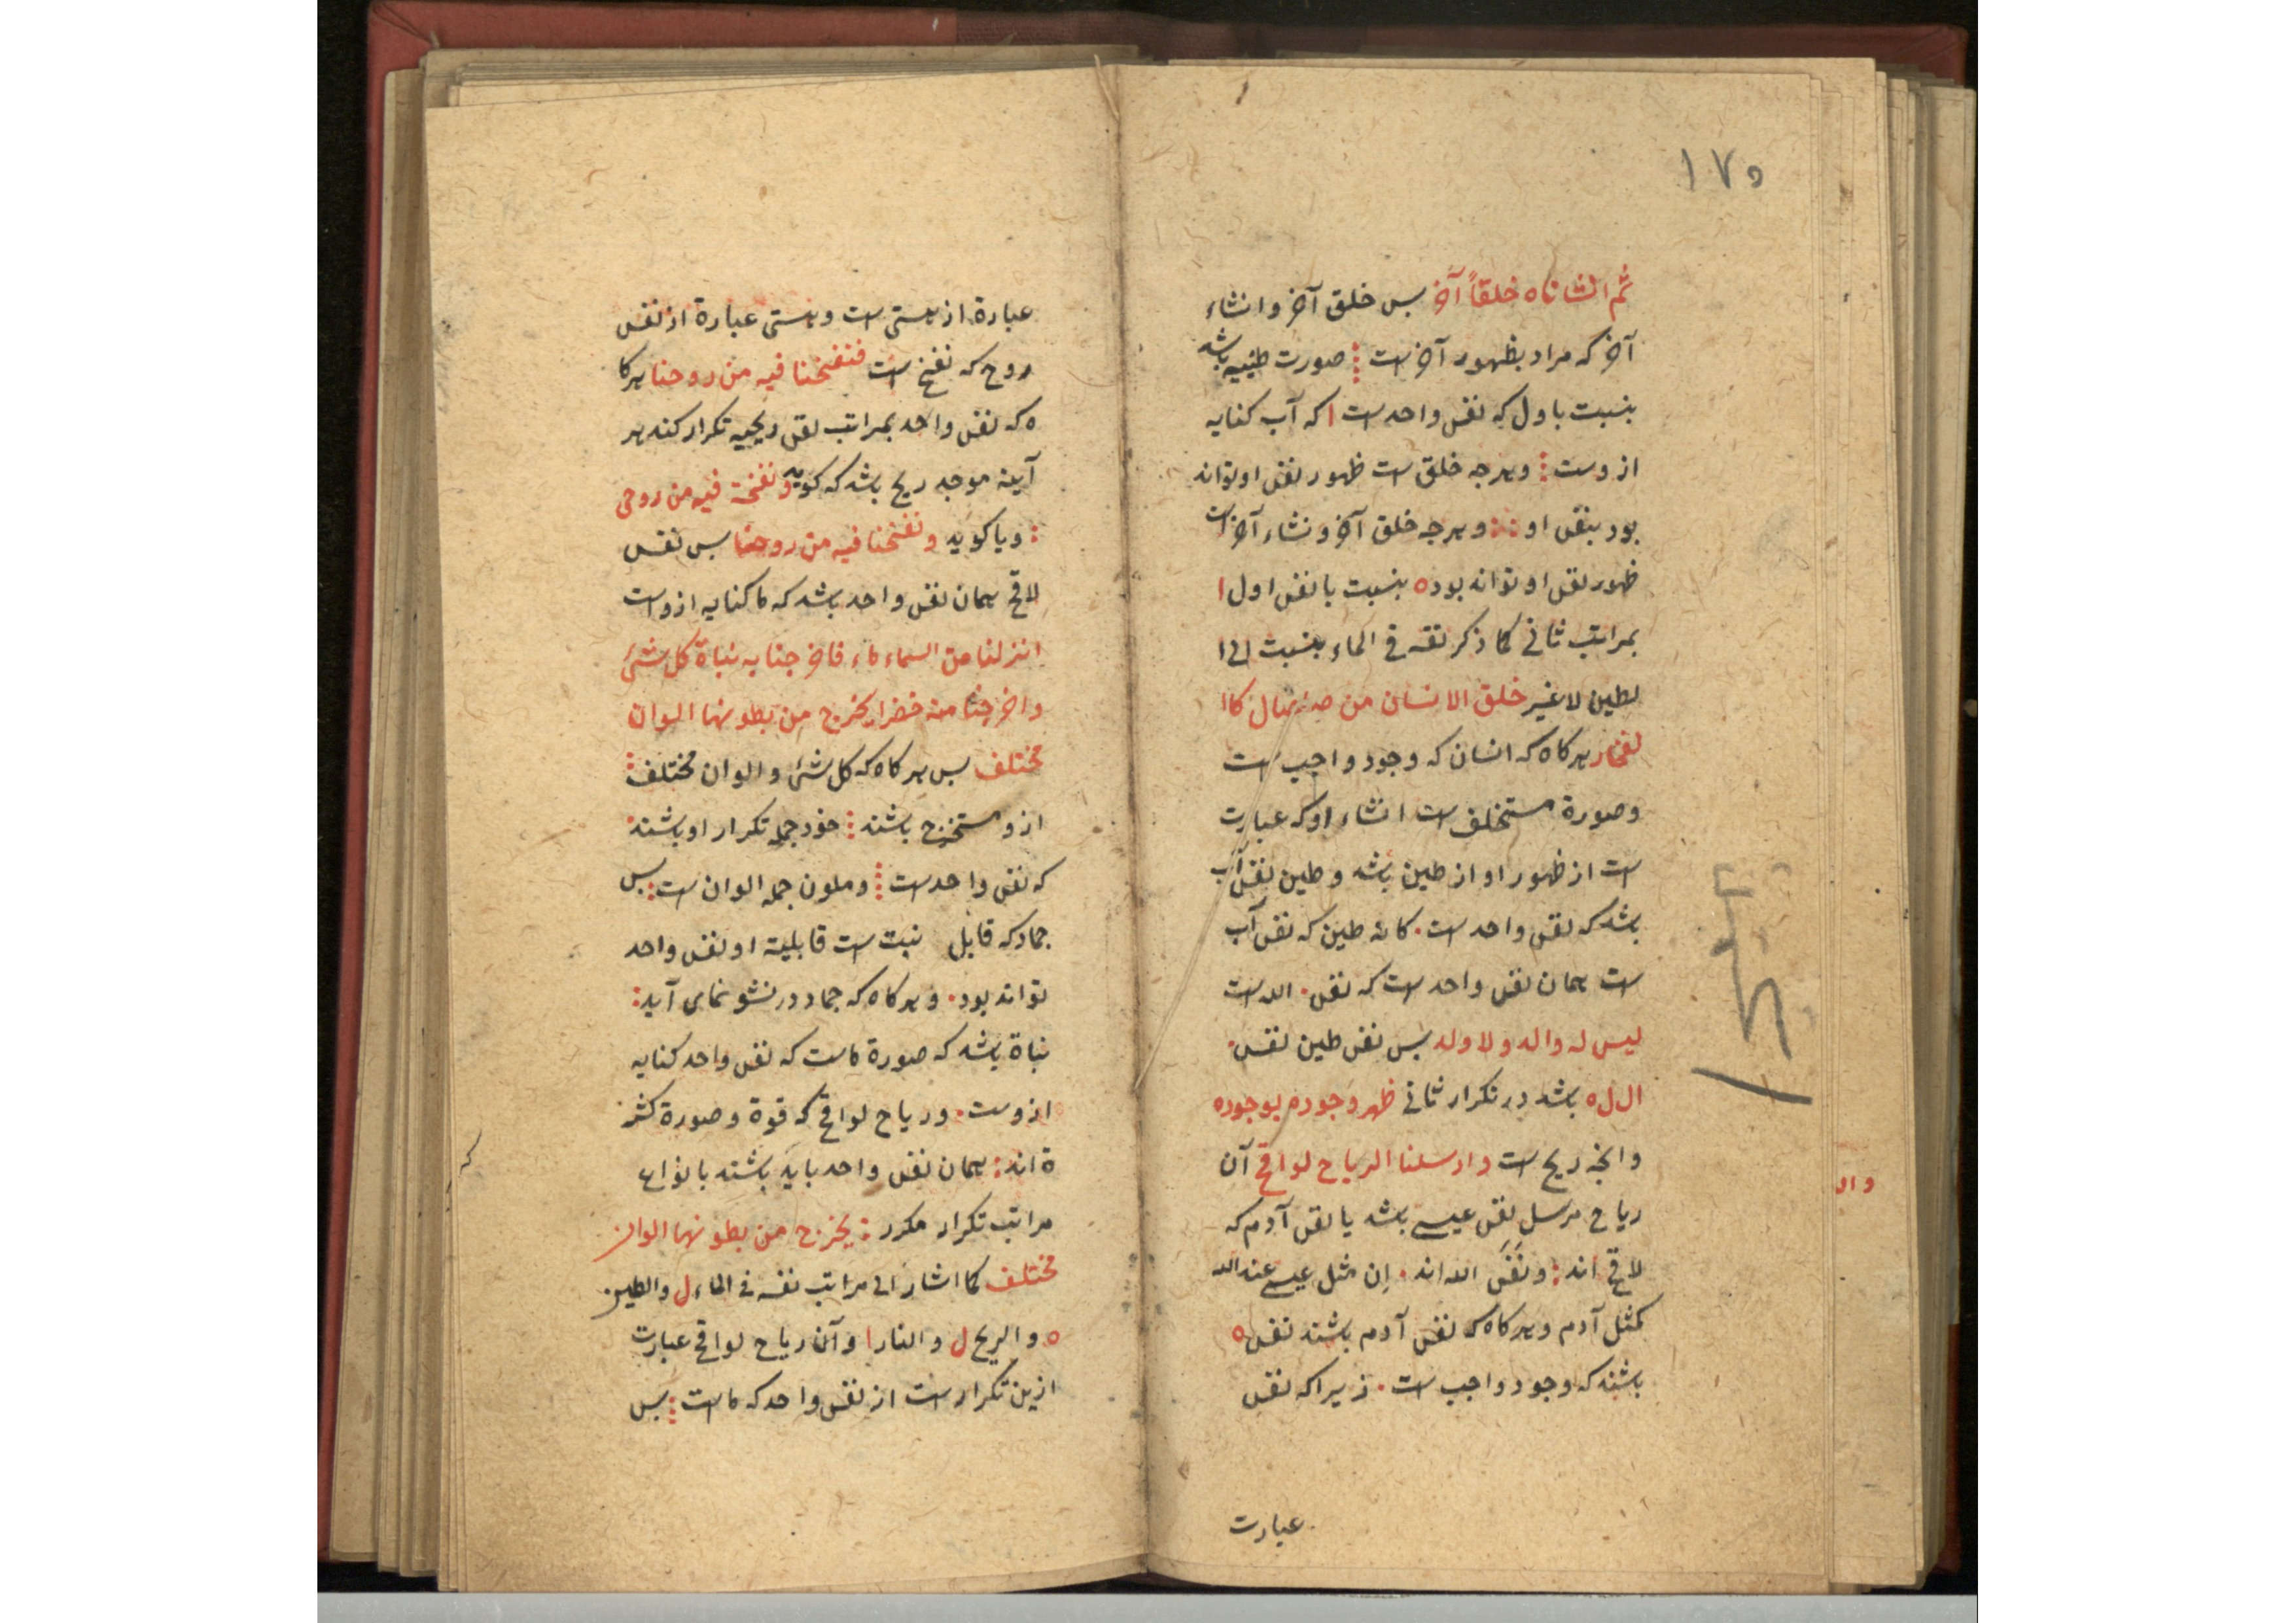 ۱۷۵
ثم انشاناه خلقاً آخر بس خلق آخر و انشاء
آخر که مراد بظهور آخر است صورت طینیه باشد
بنسبت باول که نفس واحد است ا که آب کنایه
ازوست و هرجه خلق است ظهور نفس او تواند
بود بنفس او و هرجه خلق آخر و نشاء آخر است
ظهور نفس او تواند بود ه بنسبت با نفس اول ا
بمراتب ثانی کما ذکر نفسه فی الماء بنسبت الی ا
لطین لا غیر خلق الانسان من صلصال کا ا
لفخار هرکاه که انسان که وجود واجب است
وصورة مستخلف است انشاء او که عبارت
است از ظهور او از طین باشد و طین نفس آب
باشد که نفس واحد است. کانه طین که نفس آب
است همان نفس واحد است که نفس. الله است
لیس له والد و لا ولد بس نفس طین نفس.
ال ل ه باشد در تکرار ثانی ظهر وجوده بوجوده
وانجه ریح است وارسلنا الریاح لواقح آن
ریاح مرسل نفس عیسی باشد یا نفس آدم که
لاقح اند و نفس الله اند. إن مثل عیسی عند الله
کمثل آدم و هرکاه که نفس آدم باشند نفس ه
باشند که وجود واجب است. زیرا که نفس
عبارت
عبارة از هستی است و هستی عبارة از نفس
روح که نفخ است فنفخنا فیه من روحنا هرکا
ه که نفس واحد بمراتب نفس ریحیه تکرار کند هر
آینه موجد ریح باشد که کوید و نفخت فیه من روحی
و یا کوید و نفخنا فیه من روحنا بس نفس
لاقح همان نفس واحد باشد که ما کنایه ازواست
انزلنا من السماء ماء فاخرجنا به نباة کل شئ
واخرجنا منه خضرا یخرج من بطونها الوان
مختلف بس هرکاه که کل شئ و الوان مختلف
ازو مستخرج باشند خود جمله تکرار او باشند
که نفس واحد است و ملون جمله الوان است بس
جماد که قابل نبت است قابلیة او نفس واحد
تواند بود. و هرکاه که جماد در نشو نمای آید
نباة باشد که صورة ماست که نفس واحد کنایه
ازوست. و ریاح لواقح که قوة و صورة کثر
ة اند همان نفس واحد باید باشند بانواع
مراتب تکرار مکرر یخرج من بطونها الوان
مختلف کما اشار الی مراتب نفسه فی الماء ل والطین
ه والریح ل والنار ا و آن ریاح لواقح عبارت
ازین تکرار است از نفس واحد که ماست بس
که
وال